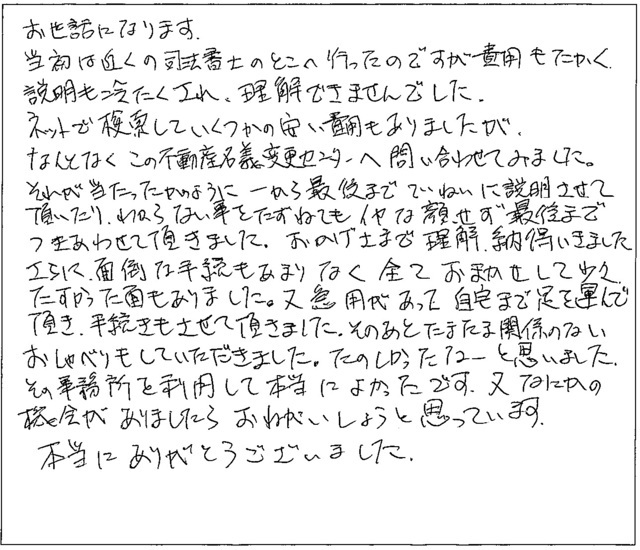 お世話になります。
当初は近くの司法書士のとこへ行ったのですが費用もたかく
説明も冷たくされ、理解できませんでした。
ネットで検索していくつかの安い費用もありましたが、
なんとなくこの不動産名義変更センターへ問い合わせてみました。
それが当たったかのように一から最後までていねいに説明させて
頂いたり、わからない事をたずねてもイヤな顔せず最後まで
つきあわせて頂きました。おかげさまで理解、納得いきました
さらに、面倒な手続もあまりなく全ておまかせして少々
たすかった面もありました。又急用があって自宅まで足を運んで
頂き、手続きもさせて頂きました。そのあとたまたま関係のない
おしゃべりもしていただきました。たのしかったなーと思いました。
その事務所を利用して本当によかったです。又なにかの
機会がありましたらおねがいしようと思っています。
本当にありがとうございました。